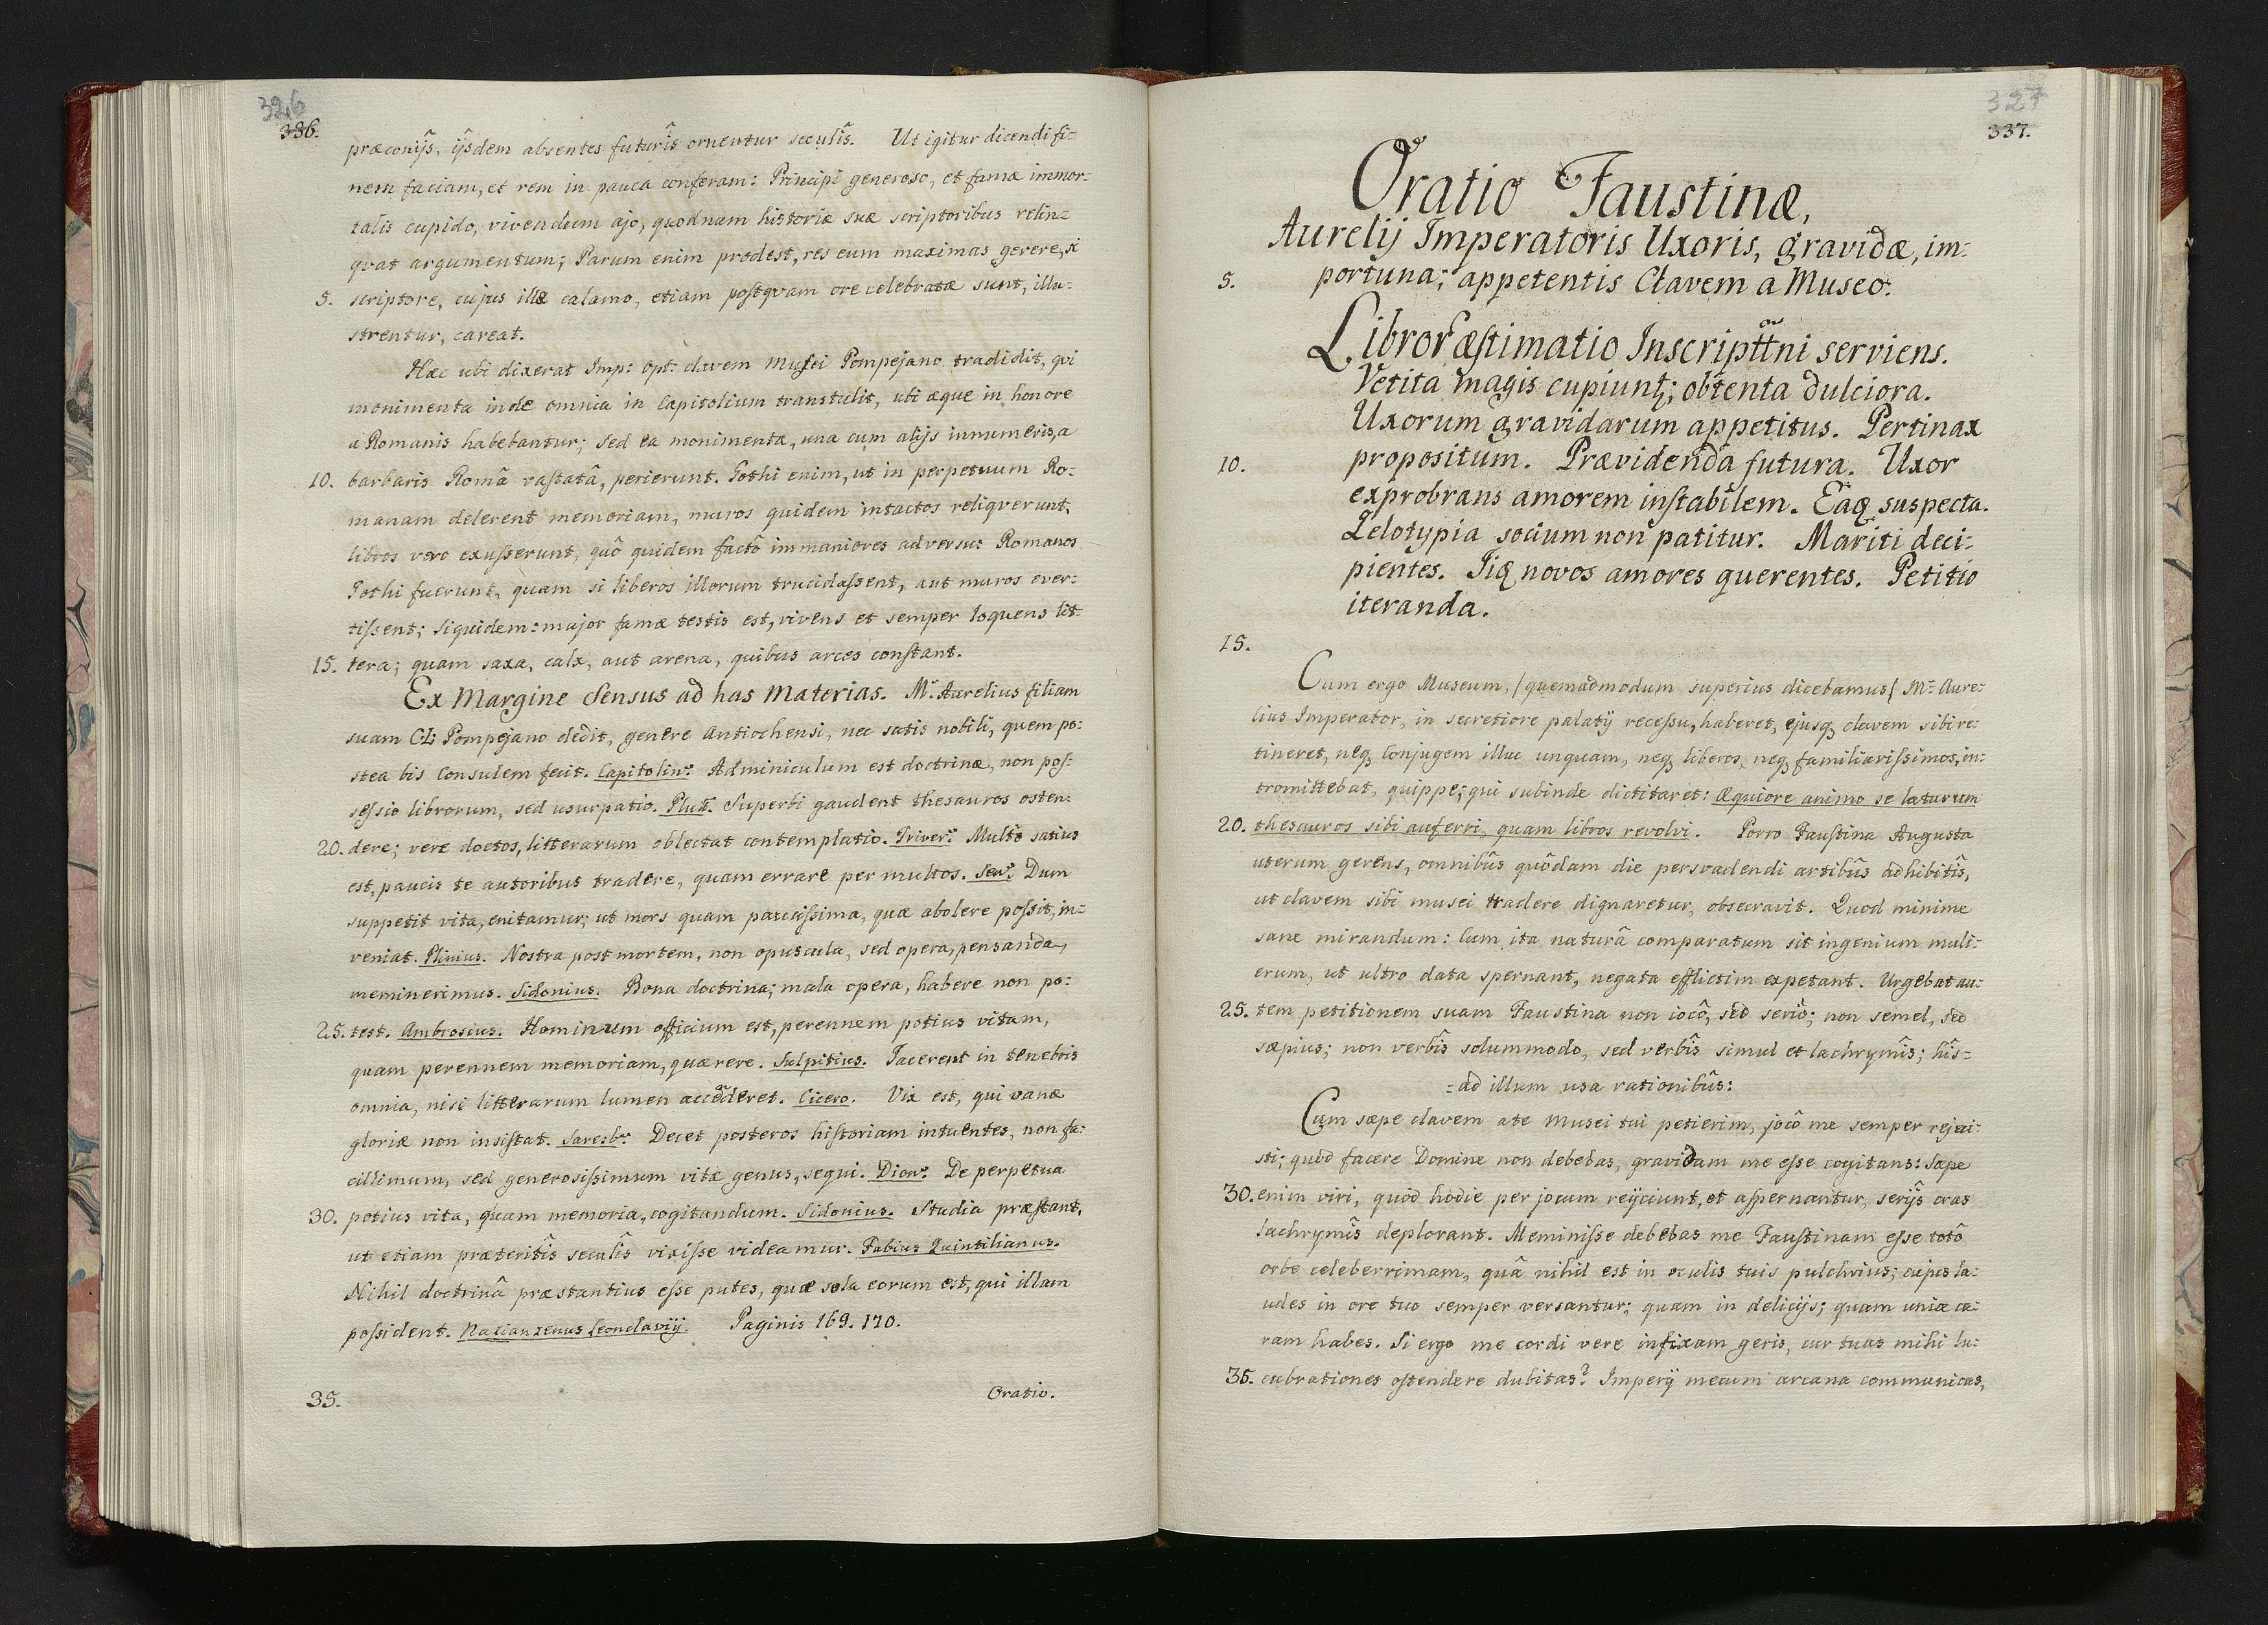 326
336.
præconijs, ijsdem absentes futurîs ornentur seculîs. Ut igitur dicendi fi=
nem faciam, et rem in pauca conferam: Principi generoso, et famæ immor=
talis cupido, vivendum ajo, quodnam historiæ suæ scriptoribus relin=
qvat argumentum; Parum enim prodest, res eum maximas gerere, si
5. scriptore, cujus illæ calamo, etiam postqvam ore celebratæ sunt, illu=
strentur, careat.
Hæc ubi dixerat Imp: Opt: clavem Musei Pompejano tradidit, qvi
monimenta inde omnia in Capitolium transtulit, ubi æque in honore
a Romanis habebantur; sed ea monimenta, una cum alijs innumeris, a
10. barbaris Româ vastatâ, perierunt. Gothi enim, ut in perpetuum Ro=
manam delerent memoriam, muros quidem intactos reliqverunt,
libros vero exusserunt, quô quidem factô immaniores adversus Romanos
Gothi fuerunt, quam si liberos illorum trucidassent, aut muros ever=
tissent; Siquidem: major famæ testis est, vivens et semper loquens lit=
15. tera; quam saxa, calx, aut arena, quibus arces constant.
Ex Margine Sensus ad has Materias. M: Aurelius filiam
suam Cl: Pompejano dedit, genere Antiochensi, nec satis nobili, quem po=
stea bis Consulem fecit. Capitolin: Adminiculum est doctrinæ, non pos=
sessio librorum, sed usurpatio. Plut: Superbi gaudent thesauros osten=
20. dere; vere doctos, litterarum oblectat contemplatio. Triver: Multo satius
est, paucis te autoribus tradere, quam errare per multos. Sen: Dum
suppetit vita, enitamur; ut mors quam paucissima, quæ abolere possit, in=
veniat. Plinius. Nostra post mortem, non opuscula, sed opera, pensanda,
meminerimus. Sidonius. Bona doctrina; mala opera, habere non po=
25. test. Ambrosius. Hominum officium est, perennem potius vitam,
quam perennem memoriam, quærere. Sulpitius. Jacerent in tenebris
omnia, nisi litterarum lumen accederet. Cicero. Vix est, qui vanæ
gloriæ non insistat. Saresb: Decet posteros historiam intuentes, non fa=
cillimum, sed generosissimum vitæ genus, sequi. Dion: De perpetua
30. potius vita, quam memoria, cogitandum. Sidonius. Studia præstant,
ut etiam præteritîs seculîs vixisse videamur. Fabius Quintilianus.
Nihil doctrinâ præstantius esse putes, quæ sola eorum est, qui illam
possident. Nazianzenus Leonclavij. Paginis 169. 170.
35.
Oratio.
327
337.
Oratio Faustinæ,
Aurelij Imperatoris Uxoris, gravidæ, im=
5. portuna; appetentis Clavem a Museo.
Libror æstimatio Inscripttni serviens.
Vetita magis cupiunt; obtenta dulciora.
Uxorum gravidarum appetitus. Pertinax
10. propositum. Prævidenda futura. Uxor
exprobrans amorem instabilem. Eaq suspecta.
Zelotypia socium non patitur. Mariti deci=
pientes. Iiq novos amores querentes. Petitio
iteranda.
15.
Cum ergo Museum, /quemadmodum superius dicebamus/ M: Aure=
lius Imperator, in secretiore palatij recessu, haberet, ejusq, clavem sibi re=
tineret, neq, Conjugem illuc unquam, neq, liberos, neq, familiarissimos, in=
tromittebat, quippe; qui subinde dictitaret: Æquiore animo se laturum
20. thesauros sibi auferri, quam libros revolvi. Porro Faustina Augusta
uterum gerens, omnibûs quôdam die persvadendi artibûs adhibitîs,
ut clavem sibi musei tradere dignaretur, obsecravit. Quod minime
sane mirandum: Cum ita naturâ comparatum sit ingenium muli=
erum, ut ultro data spernant, negata efflictim expetant. Urgebat au=
25. tem petitionem suam Faustina non jocô, sed seriô; non semel, sed
sæpius; non verbîs solummodo, sed verbîs simul et lachrymîs; hîs=
=ad illum usa rationibûs:
Cum sæpe clavem a te Musei tui petierim, jocô me semper rejeci=
sti; quod facere Domine non debebas, gravidam me esse cogitans: Sæpe
30. enim viri, quod hodie per jocum reijciunt, et aspernantur, serijs cras
lachrymîs deplorant. Meminisse debebas me Faustinam esse totô
orbe celeberrimam, quâ nihil est in oculis tuis pulchrius; cujus la=
udes in ore tuo semper versantur; quam in delicijs; quam unicæ ca=
ram habes. Si ergo me cordi vere infixam geris, cur tuas mihi lu=
35. cubrationes ostendere dubitas? Imperij mecum arcana communicas,